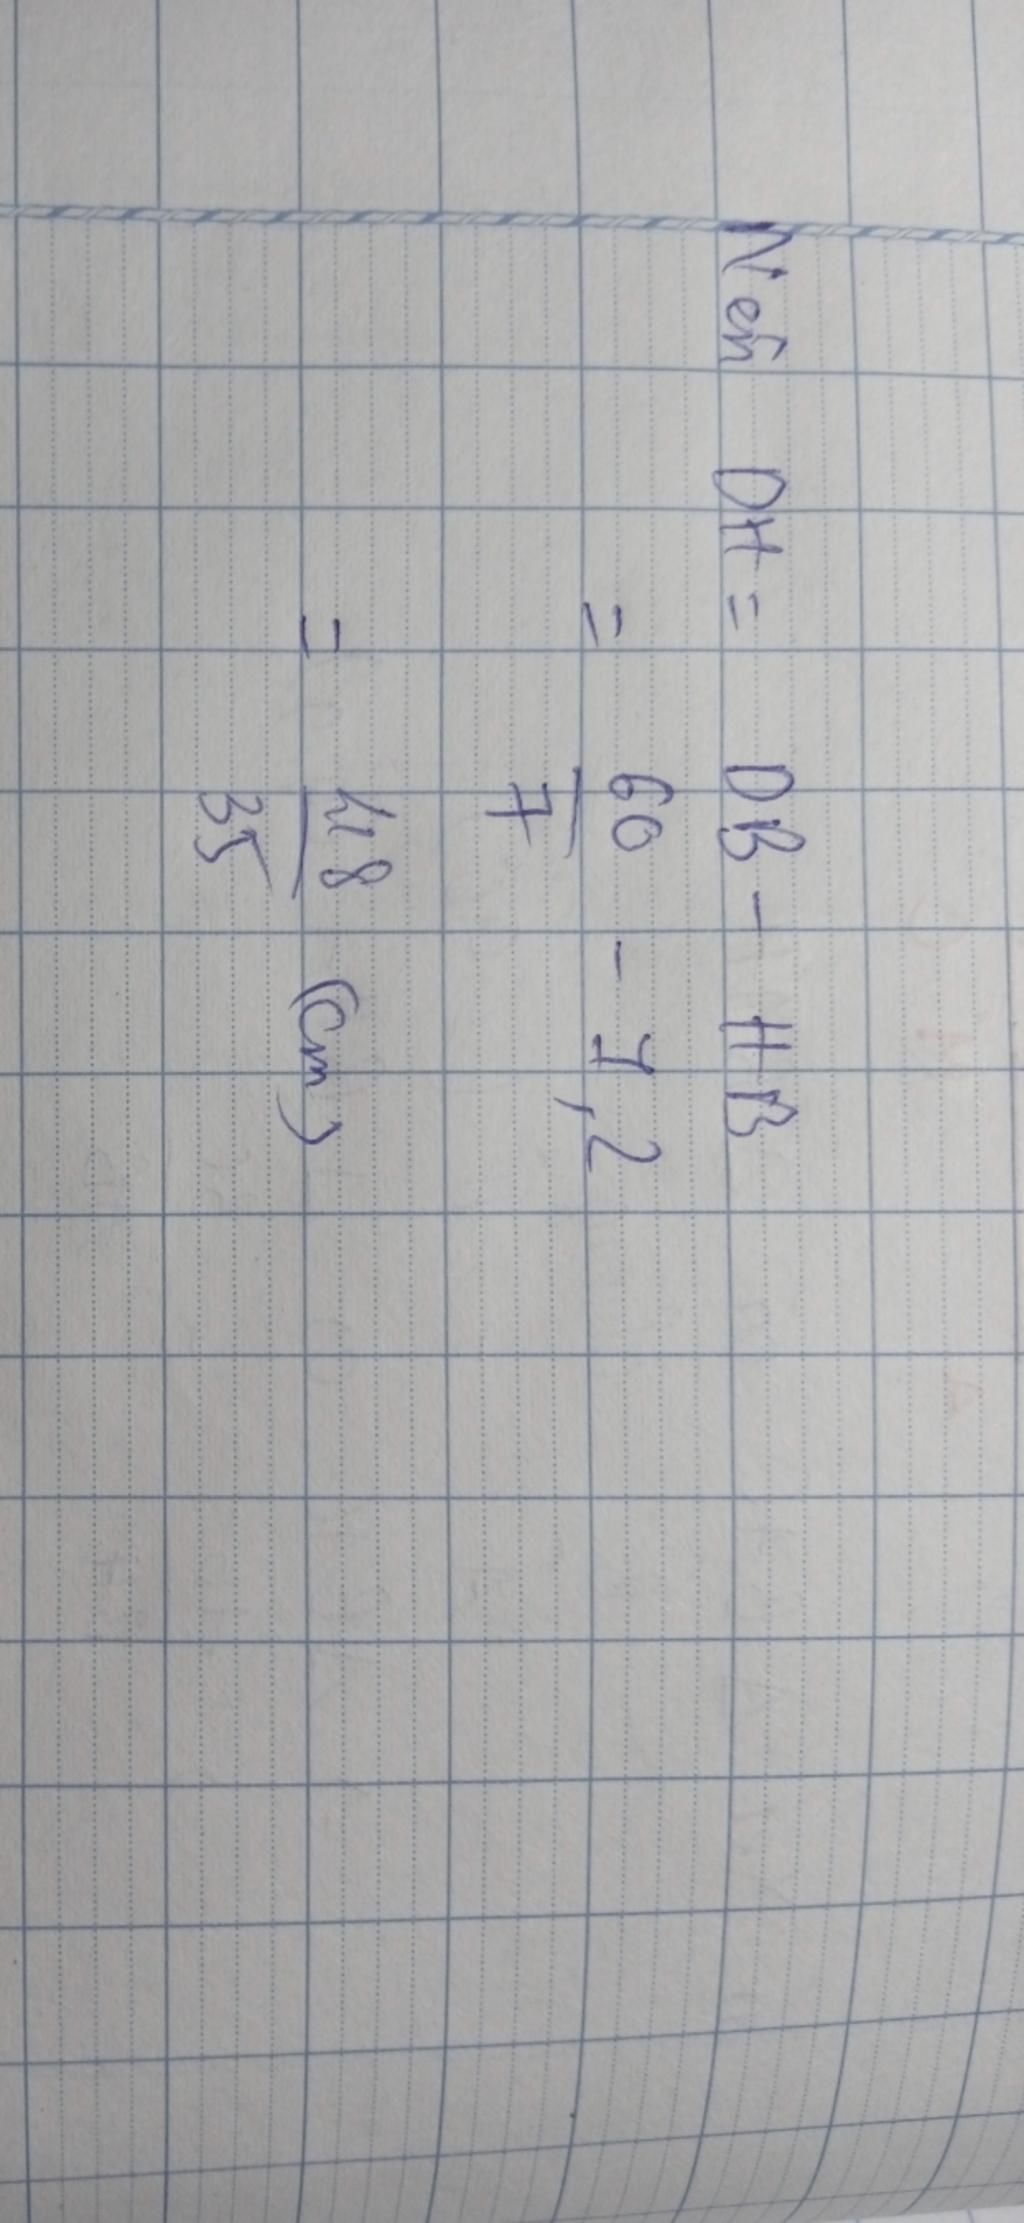 Nên DH = DB - HB
= 60/7 - 7,2
= 48/35 (cm)